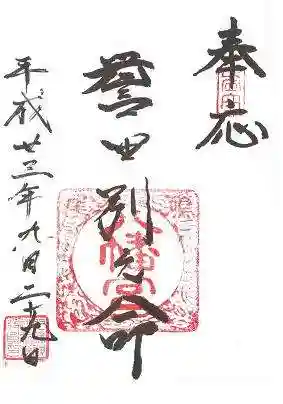 奉応
譽田別之命
八幡宮
平成廿三年九月二十九日